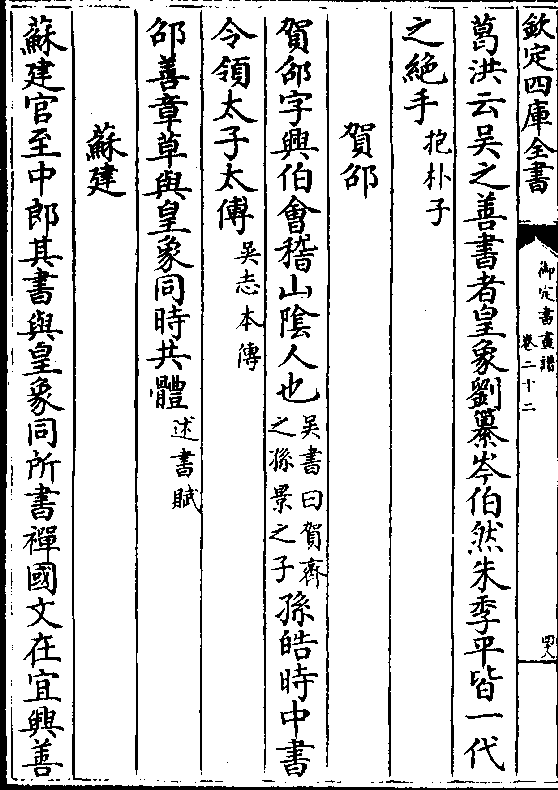 欽定四庫全書
御定書畫譜
卷二十二
葛洪云吳之善書者皇象劉纂岑伯然朱季平皆一代
之絶手抱朴子
賀邵
賀邵字興伯會稽山陰人也吳書曰賀齊之孫景之子孫皓時中書
令領太子太傅吳志本傳
邵善章草與皇象同時共體述書賦
蘇建
蘇建官至中郎其書與皇象同所書禪國文在宜興善